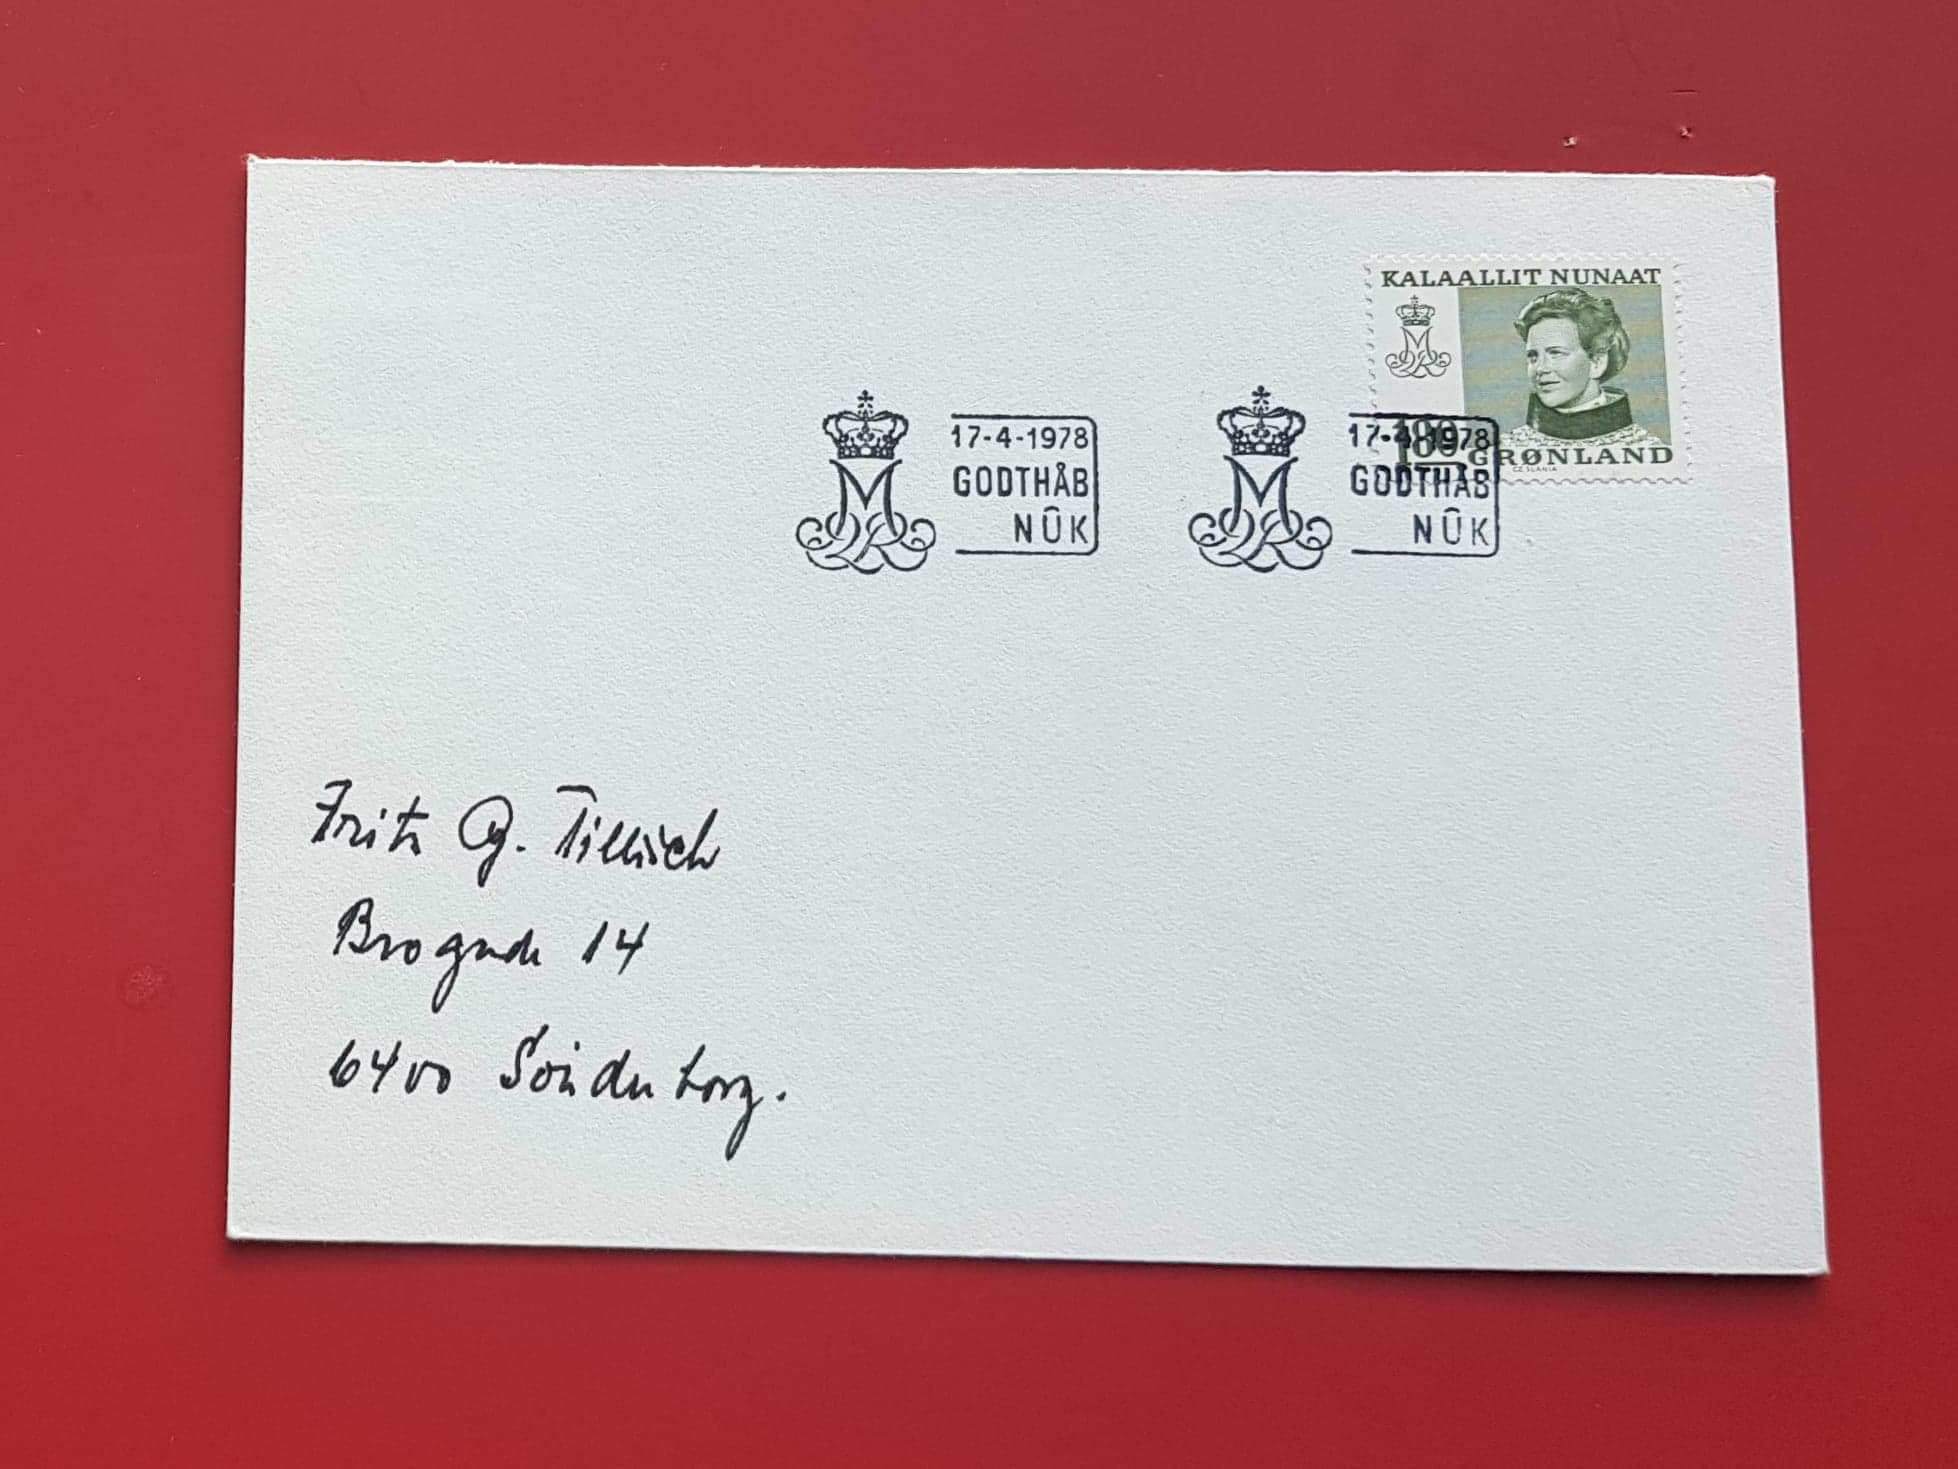 KALAALLIT NUNAAT
180
GRØNLAND
CZ SLANIA
17-4-1978
GODTHÅB
NÛK
17-4-1978
GODTHÅB
NÛK
Fritz G. Tillisch
Brogade 14
6400 Sönderborg.